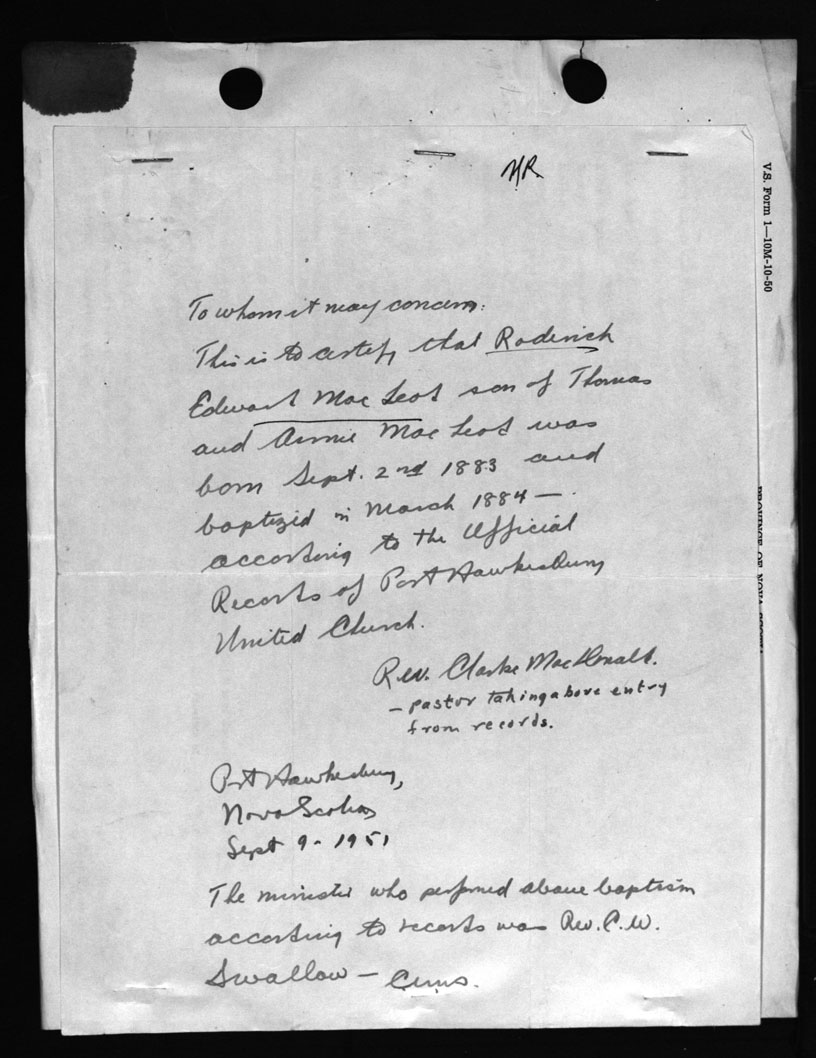 V.S. Form 1—10M-10-50
To whom it may concern:
This is to certify that Roderick
Edward Mac Leod son of Thomas
and Annie Mac Leod was
born Sept. 2nd 1883 and
baptized in March 1884 —
according to the Official
Records of Port Hawkesbury
United Church.
Rev. Clarke MacDonald.
— pastor taking above entry
from records.
Port Hawkesbury,
Nova Scotia
Sept 9 - 1951
The minister who performed above baptism
according to records was Rev. C. W.
Swallow —